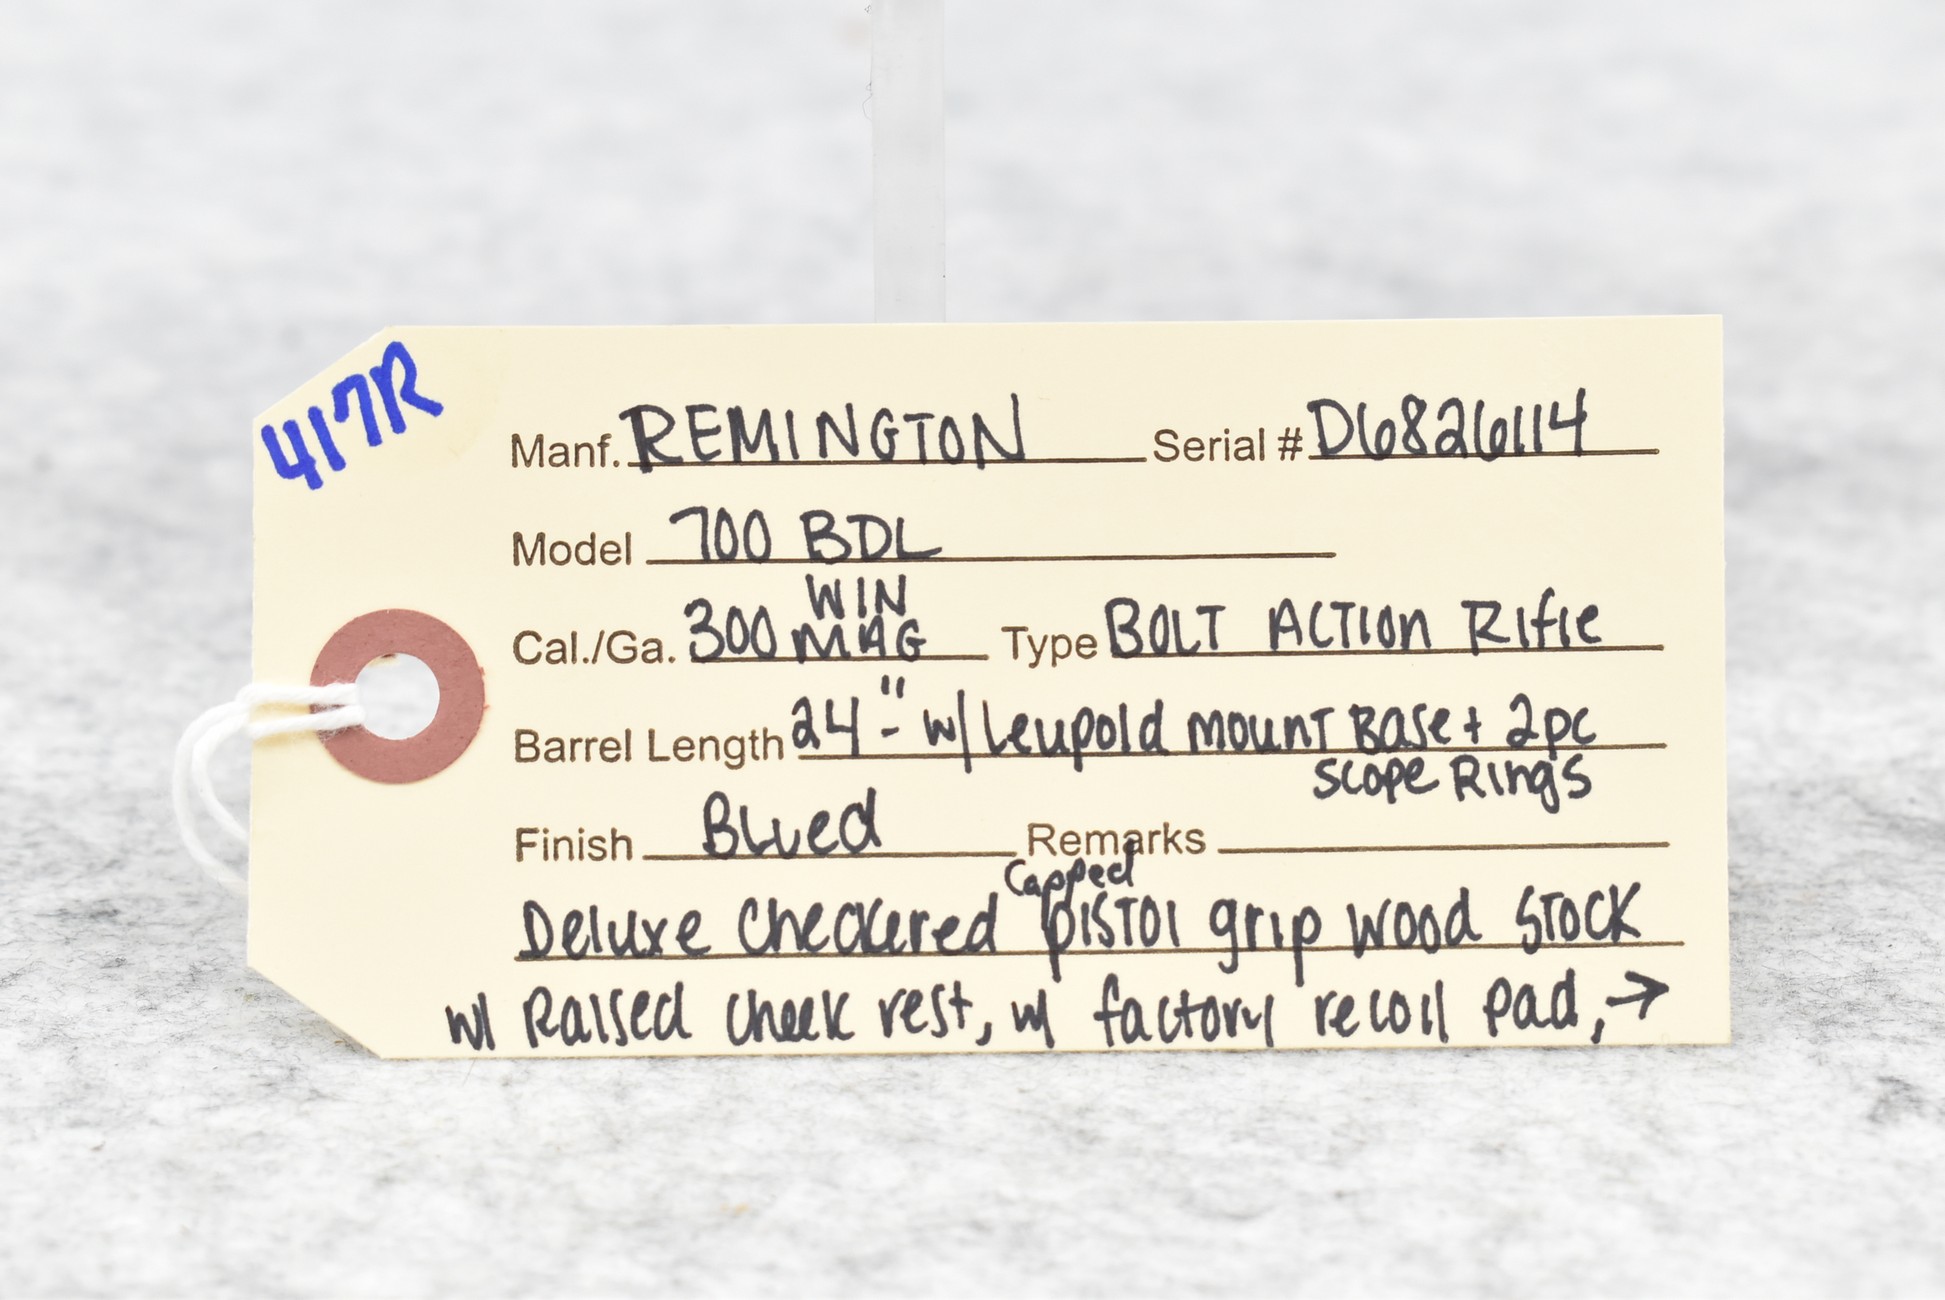 417R
Manf. REMINGTON Serial # D6826114
Model 700 BDL
WIN
Cal./Ga. 300 MAG Type BOLT ACTION RIfle
Barrel Length 24"- w/ Leupold mount Base + 2pc
Scope Rings
Finish Blued Remarks
Capped
Deluxe Checkered pistol grip wood stock
w/ Raised cheek rest, w/ factory recoil pad, →